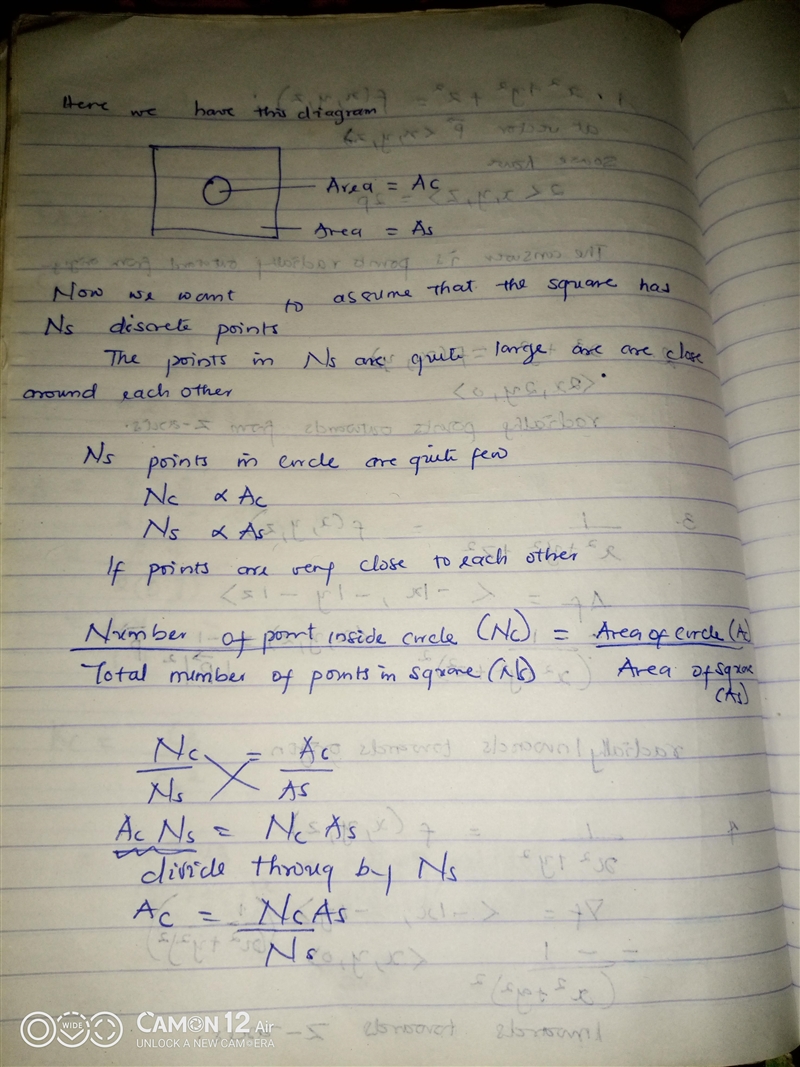 Here we have this diagram
Area = Ac
Area = As
Now we want to assume that the square has
Ns discrete points
The points in Ns are quite large are are close
around each other
Ns points in circle are quite few
Nc ∝ Ac
Ns ∝ As
If points are very close to each other
Number of point inside circle (Nc) = Area of circle (Ac)
Total number of points in square (Ns) Area of square
(As)
Nc = Ac
Ns As
Ac Ns = Nc As
divide throug by Ns
Ac = Nc As
Ns
WIDE
CAMON 12 Air
UNLOCK A NEW CAMERA